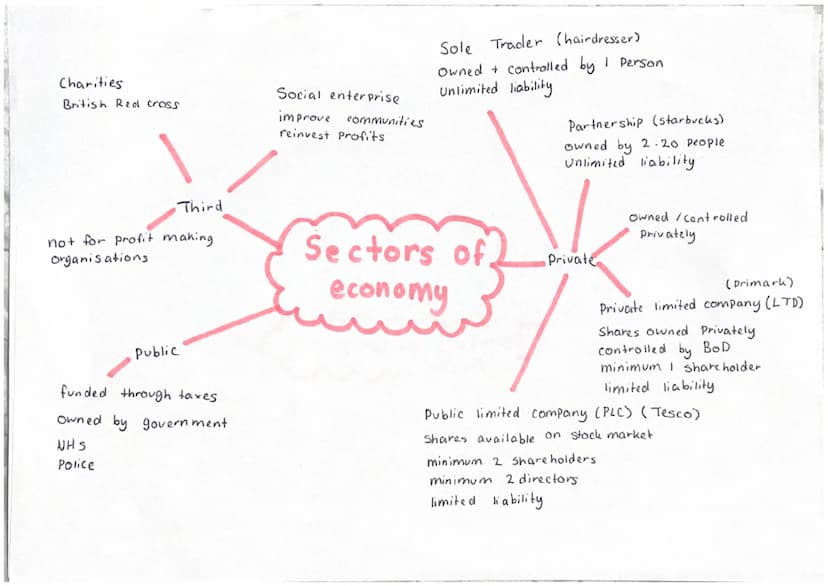 Sectors of
economy
Third
Charities
British Red cross
Social enterprise
improve communities
reinvest profits
not for profit making
organisations
Public
funded through taxes
owned by government
NHS
Police
Private
Sole Trader (hairdresser)
owned + controlled by 1 Person
Unlimited liability
Partnership (starbucks)
owned by 2-20 people
Unlimited liability
owned/controlled
Privately
(primark)
Private limited company (LTD)
Shares owned Privately
controlled by BoD
minimum 1 shareholder
limited liability
Public limited company (PLC) (Tesco)
Shares available on stock market
minimum 2 shareholders
minimum 2 directors
limited liability